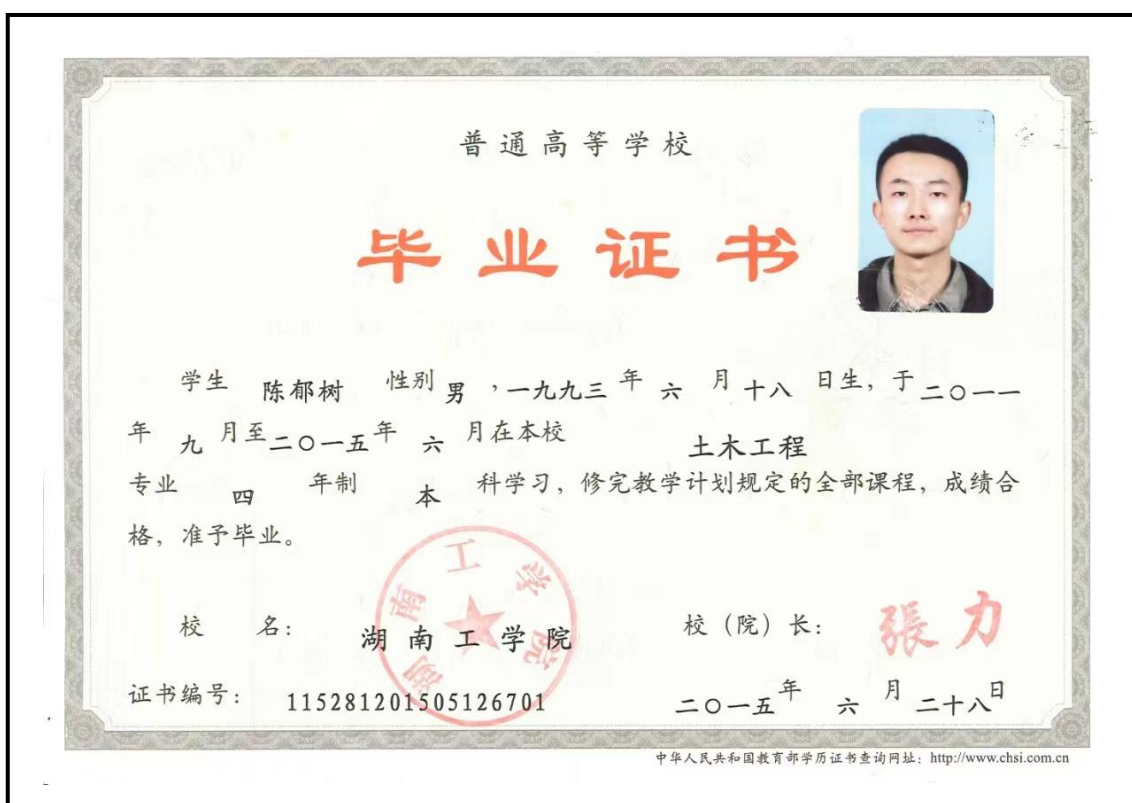 普通高等学校
毕业证书
学生 陈郁树 性别 男 ,一九九三 年 六 月 十八 日生，于 二〇一一
年 九 月至 二〇一五 年 六 月在本校 土木工程
专业 四 年制 本 科学习，修完教学计划规定的全部课程，成绩合
格，准予毕业。
湖南工学院
校 名： 湖南工学院 校（院）长： 張力
证书编号： 115281201505126701 二〇一五 年 六 月 二十八 日
中华人民共和国教育部学历证书查询网址：http://www.chsi.com.cn